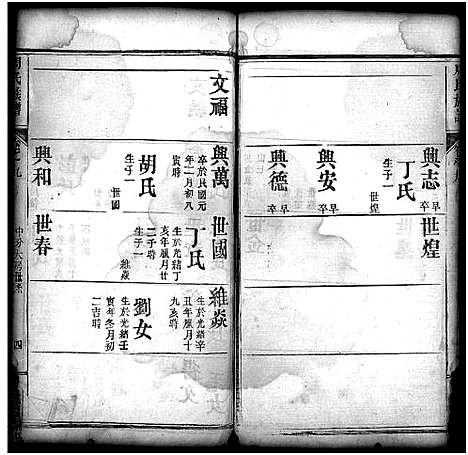 興志
早卒
丁氏
生子一
世煌
世煌
興安
早卒
興德
早卒
文福
興萬
卒於民國元
年二月初八
寅時
胡氏
生子一
世國
世國
生於光緒丁
亥年臘月廿
二子時
丁氏
生子一
維焱
維焱
生於光緒辛
丑年臘月十
九亥時
劉女
生於光緒壬
寅年冬月初
二吉時
興和
世春
四